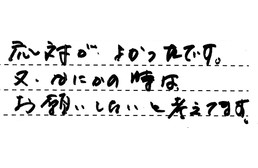 応対が よかったです。
又、なにかの時は
お願いしたいと考えてます。